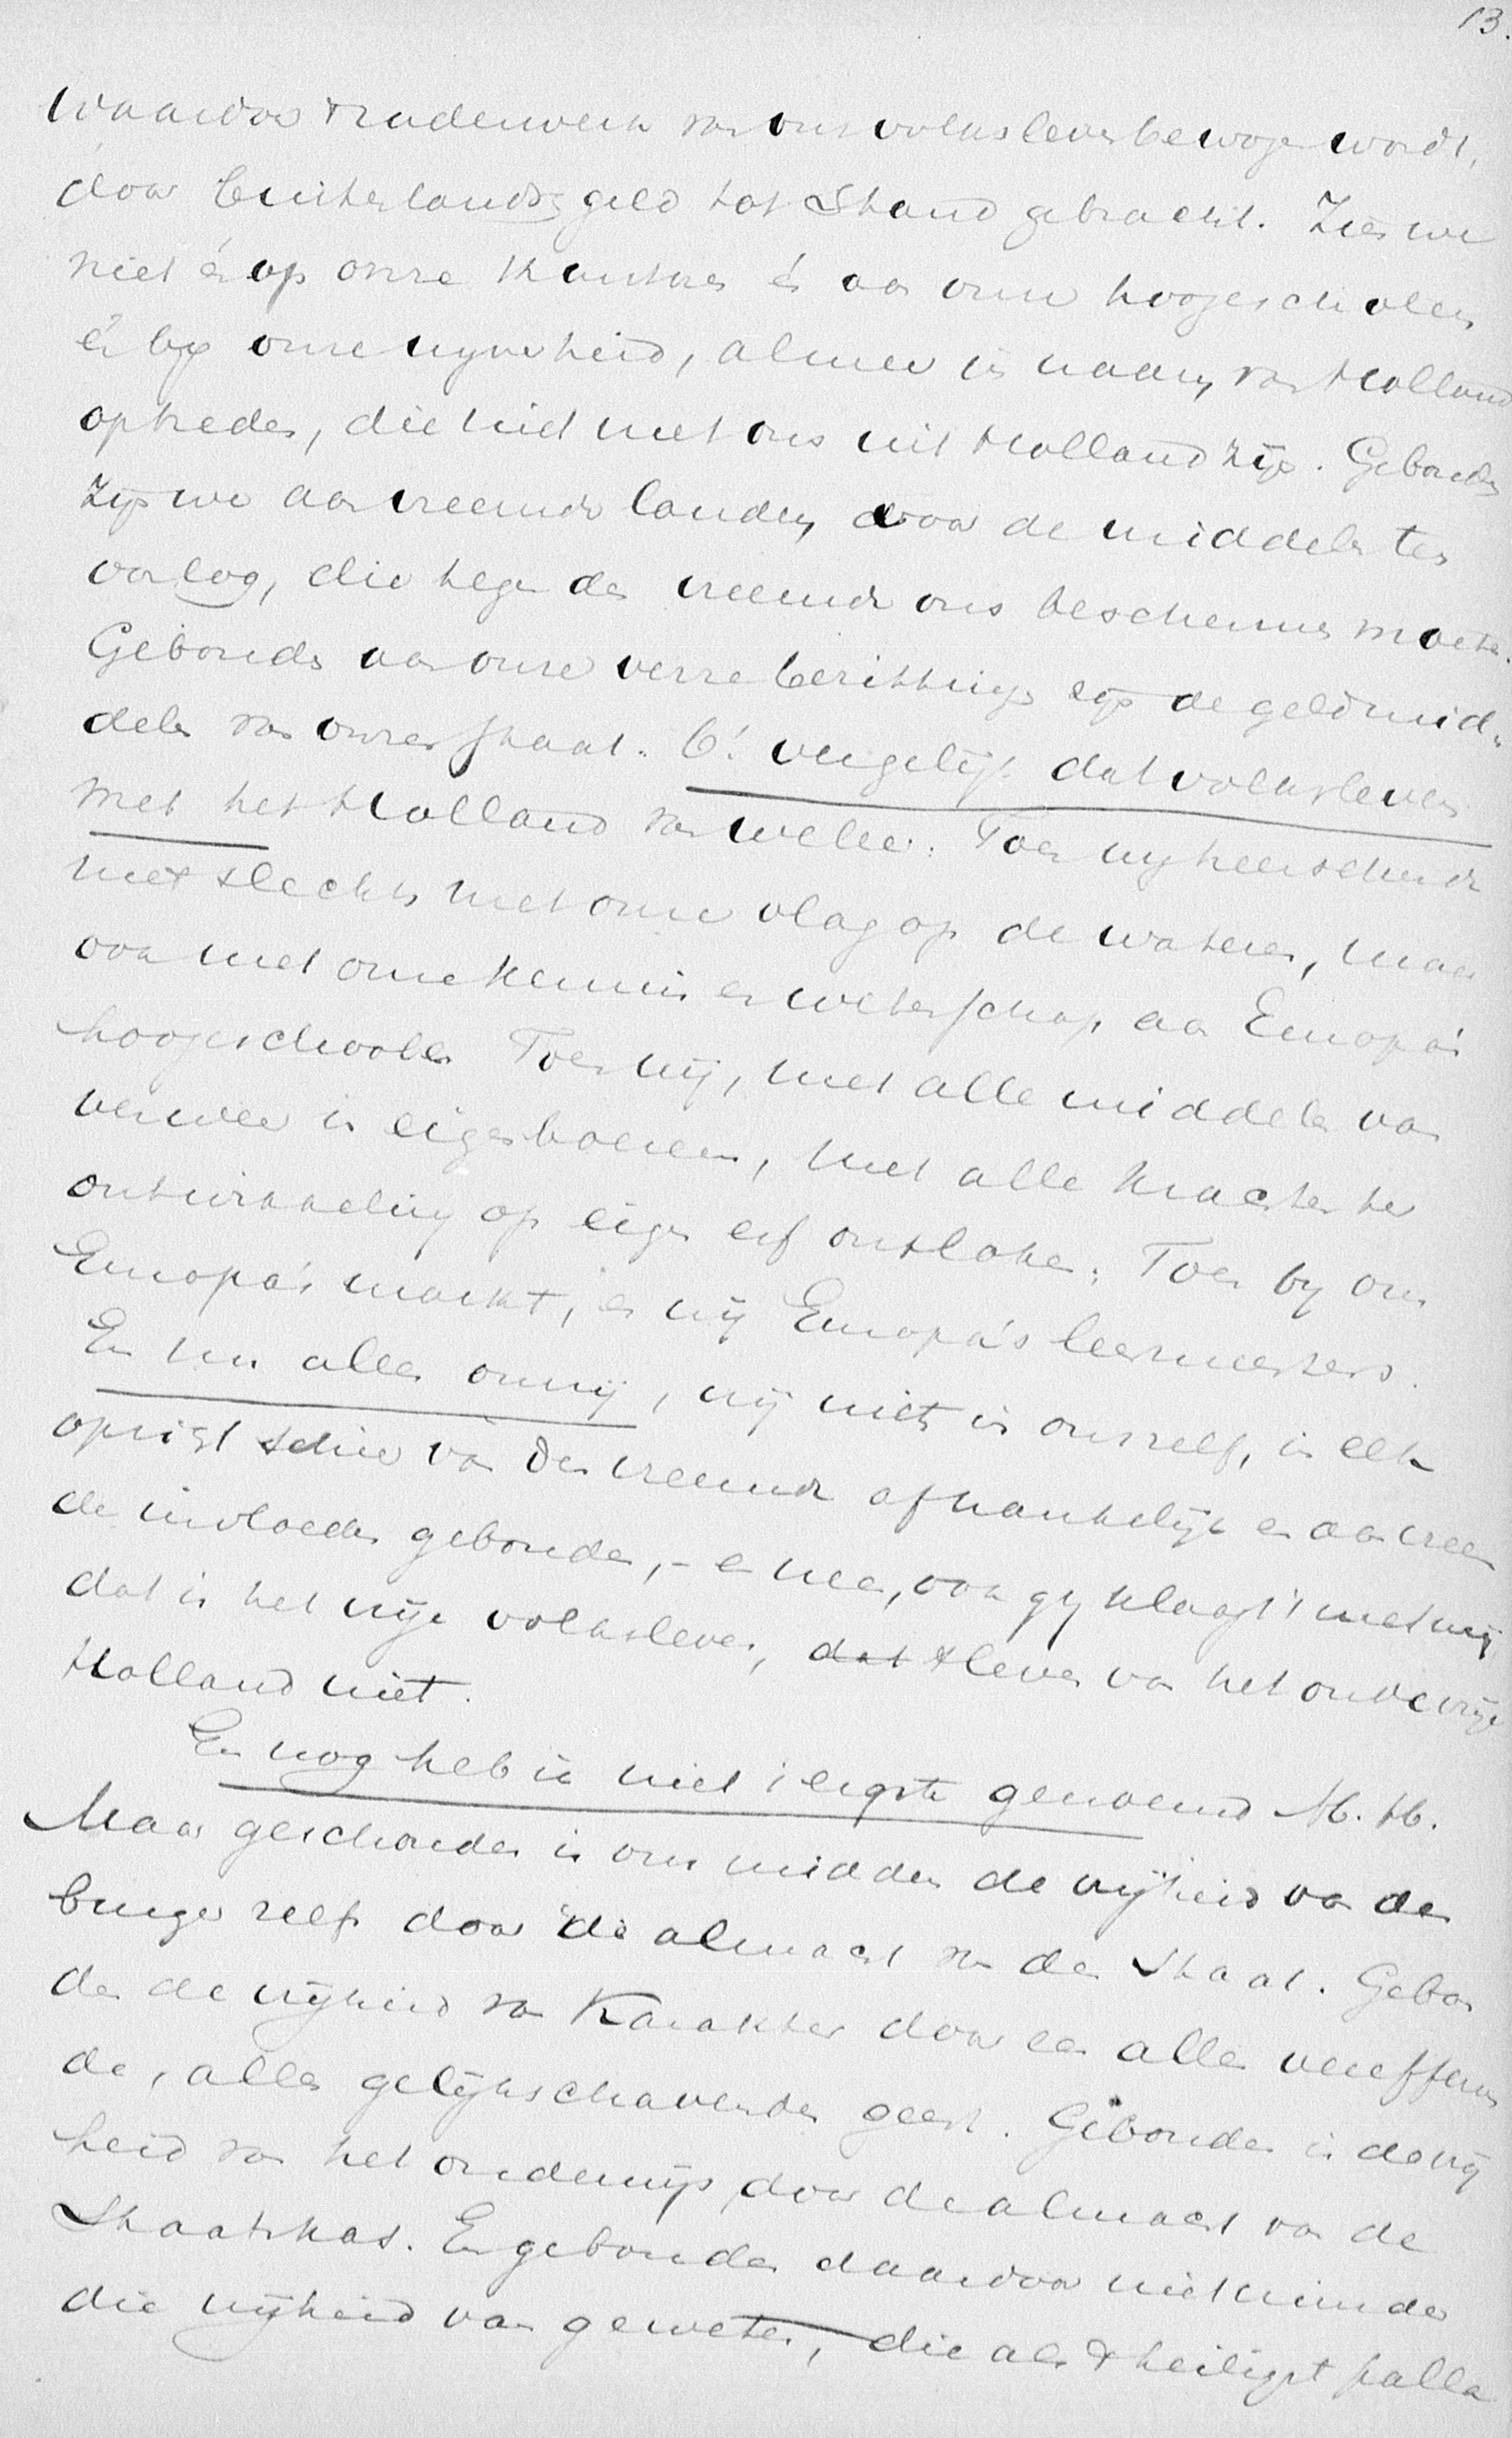 13.
waardoor 't raderwerk van ons volksleven bewogen wordt,
door buitenlandsg geld tot stand gebracht. Zien we
niet én op onze kantoren én aan onze hoogescholen
én by onze nyverheid, almeer in naam van Holland
optreden, die niet met ons uit Holland zijn. Gebonden
zijn we aan vreemde landen, door de middelen ten
oorlog, die tegen den vreemde ons beschermen moeten.
Gebonden aan onze verre bezittingen zijn de geldmid-
delen van onzen staat. O! vergelijk dat volksleven
met het Holland van welëer. Toen vry heerschende
niet slechts met onze vlag op de wateren, maar
ook met onze kennis en wetenschap aan Europa's
hoogeschoolen Toen vrij, met alle middelen van
verweer in eigen boezem, met alle krachten ter
ontwikkeling op eigen erf ontloken. Toen by ons
Europa's markt, en wij Europa's leermeesters.
En nu alles onvrij, vrij niets in onszelf, in elk
opzigt schier van den vreemde afhankelijk en aan vreem
de invloeden gebonden, - o neen, ook gy klaagt 't met mij,
dat is het vrije volksleven, dat 't leven van het oude vrije
Holland niet.
En nog heb ik niet 't ergste genoemd M. H.
Maar geschonden is ons midden de vrijheid van den
burger zelf door de almacht van den Staat. Gebon
den de vrijheid van karakter door een alles vereffenen
de, alles gelijkschavenden geest. Gebonden is de vrij
heid van het onderwijs door de almacht van de
Staatskas. En gebonden daardoor niet minder
die vrijheid van geweten, die als 't heiligst palla